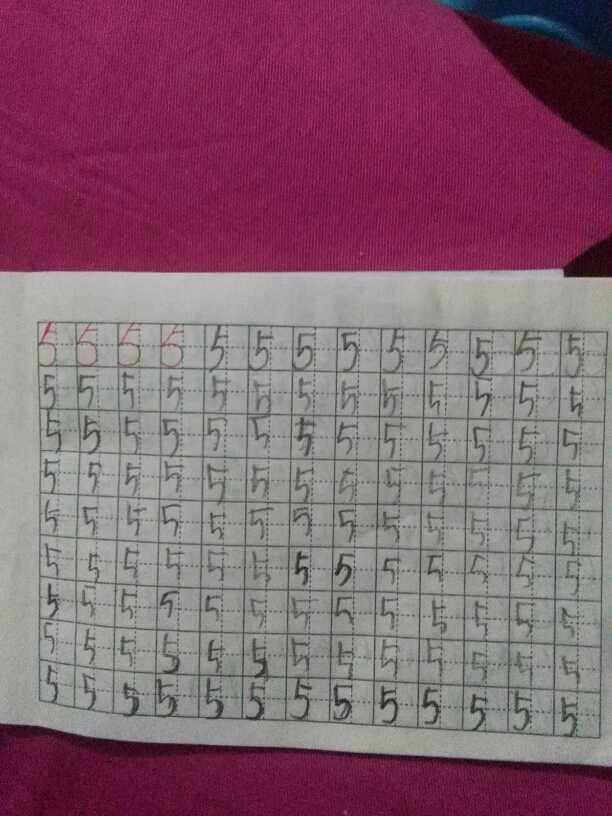 5 5 5 5 5 5 5 5 5 5 5 5 5
5 5 5 5 5 5 5 5 5 5 5 5 5
5 5 5 5 5 5 5 5 5 5 5 5 5
5 5 5 5 5 5 5 5 5 5 5 5 5
5 5 5 5 5 5 5 5 5 5 5 5 5
5 5 5 5 5 5 5 5 5 5 5 5 5
5 5 5 5 5 5 5 5 5 5 5 5 5
5 5 5 5 5 5 5 5 5 5 5 5 5
5 5 5 5 5 5 5 5 5 5 5 5 5